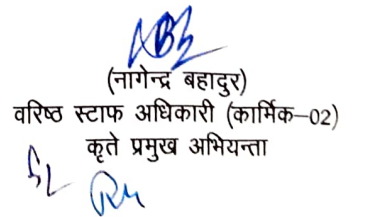 (नागेन्द्र बहादुर)
वरिष्ठ स्टाफ अधिकारी (कार्मिक–02)
कृते प्रमुख अभियन्ता